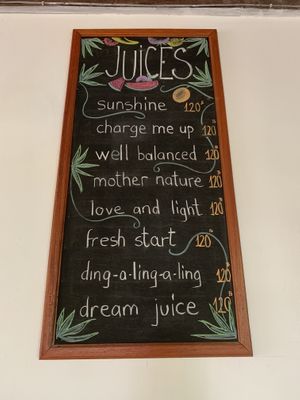 JUICES
sunshine 120
charge me up 120
well balanced 120
mother nature 120
love and light 120
fresh start 120
ding-a-ling-a-ling 120
dream juice 120